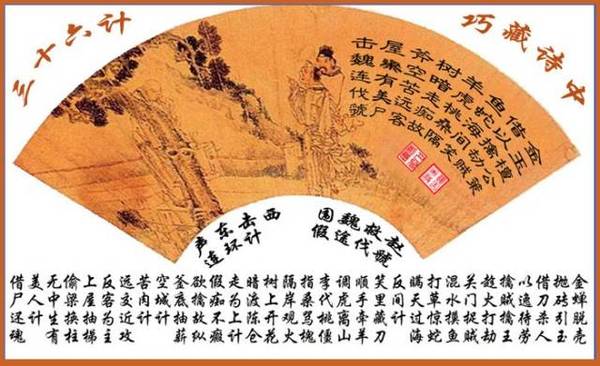 三十六计
巧藏诗中
金玉檀公策
借以擒劫贼
鱼蛇海间笑
羊虎桃桑隔
树暗走痴故
斧空苦远客
屋梁有美尸
击魏连伐號
声东击西
连环计
围魏救赵
假途伐號
金蝉脱壳
抛砖引玉
借刀杀人
以逸待劳
擒贼擒王
趁火打劫
关门捉贼
混水摸鱼
打草惊蛇
瞒天过海
反间计
笑里藏刀
顺手牵羊
调虎离山
李代桃僵
指桑骂槐
隔岸观火
树上开花
暗渡陈仓
走为上计
假痴不癫
欲擒故纵
釜底抽薪
空城计
苦肉计
远交近攻
反客为主
上屋抽梯
偷梁换柱
无中生有
美人计
借尸还魂